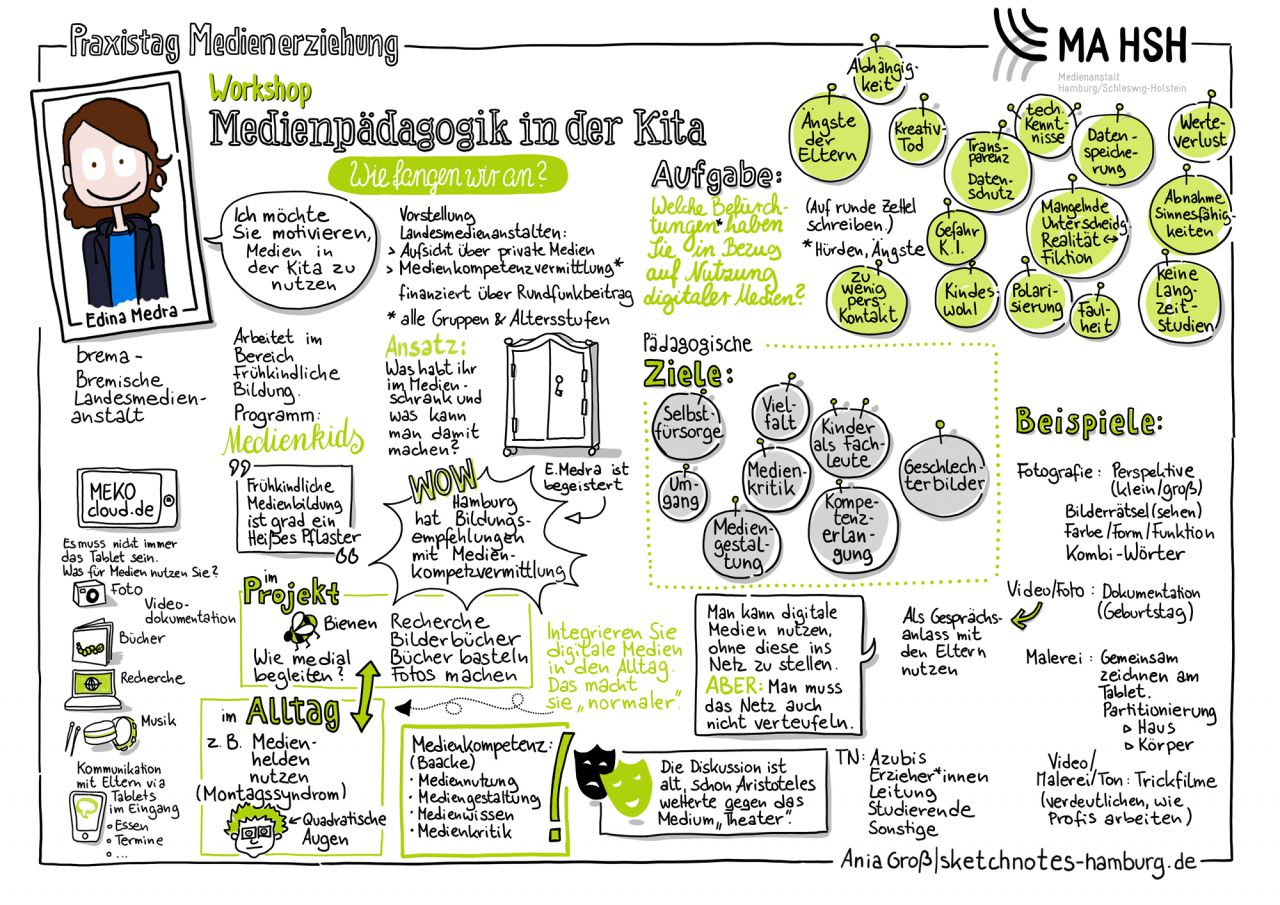 Praxistag Medienerziehung
MA HSH
Medienanstalt
Hamburg/Schleswig-Holstein
Workshop
Medienpädagogik in der Kita
Wie fangen wir an?
Edina Medra
brema -
Bremische
Landesmedien-
anstalt
Ich möchte
Sie motivieren,
Medien in
der Kita zu
nutzen
Vorstellung
Landesmedienanstalten:
> Aufsicht über private Medien
> Medienkompetenzvermittlung*
finanziert über Rundfunkbeitrag
* alle Gruppen & Altersstufen
Arbeitet im
Bereich
Frühkindliche
Bildung.
Programm:
Medienkids
Ansatz:
Was habt ihr
im Medien-
schrank und
was kann
man damit
machen?
E.Medra ist
begeistert
"Frühkindliche
Medienbildung
ist grad ein
Heißes Pflaster"
WOW
Hamburg
hat Bildungs-
empfehlungen
mit Medien-
kompetzvermittlung
Aufgabe:
Welche Befürch-
tungen* haben
Sie in Bezug
auf Nutzung
digitaler Medien?
(Auf runde Zettel
schreiben.)
* Hürden, Ängste
Abhängig-
keit
Ängste
der
Eltern
Kreativ-
Tod
Trans-
parenz
Daten-
schutz
tech.
Kennt-
nisse
Daten-
speiche-
rung
Werte-
verlust
Gefahr
K.I.
Mangelnde
Unterscheidg.
Realität ↔
Fiktion
Abnahme
Sinnesfähig-
keiten
zu
wenig
pers.
Kontakt
Kindes
wohl
Polari-
sierung
Faul-
heit
keine
Lang-
zeit-
studien
Pädagogische
Ziele:
Selbst-
fürsorge
Viel-
falt
Kinder
als Fach-
leute
Geschlech-
terbilder
Um-
gang
Medien-
kritik
Medien-
gestal-
tung
Kompe-
tenz-
erlan-
gung
Beispiele:
Fotografie: Perspektive
(klein/groß)
Bilderrätsel (sehen)
Farbe/Form/Funktion
Kombi-Wörter
Video/Foto: Dokumentation
(Geburtstag)
Als Gesprächs-
anlass mit
den Eltern
nutzen
Malerei: Gemeinsam
zeichnen am
Tablet.
Partitionierung
▷ Haus
▷ Körper
Video/
Malerei/Ton: Trickfilme
(verdeutlichen, wie
Profis arbeiten)
MEKO
cloud.de
Es muss nicht immer
das Tablet sein.
Was für Medien nutzen Sie?
Foto
Video-
dokumentation
Bücher
Recherche
Musik
Kommunikation
mit Eltern via
Tablets
im Eingang
• Essen
• Termine
• ...
im
Projekt
Bienen
Wie medial
begleiten?
Recherche
Bilderbücher
Bücher basteln
Fotos machen
im Alltag
z. B. Medien-
helden
nutzen
(Montagssyndrom)
← Quadratische
Augen
Integrieren Sie
digitale Medien
in den Alltag.
Das macht
sie „normaler".
Medienkompetenz:
(Baacke)
• Mediennutzung
• Mediengestaltung
• Medienwissen
• Medienkritik
!
Man kann digitale
Medien nutzen,
ohne diese ins
Netz zu stellen.
ABER: Man muss
das Netz auch
nicht verteufeln.
Die Diskussion ist
alt, schon Aristoteles
wetterte gegen das
Medium „Theater".
TN: Azubis
Erzieher*innen
Leitung
Studierende
Sonstige
Ania Groß|sketchnotes-hamburg.de